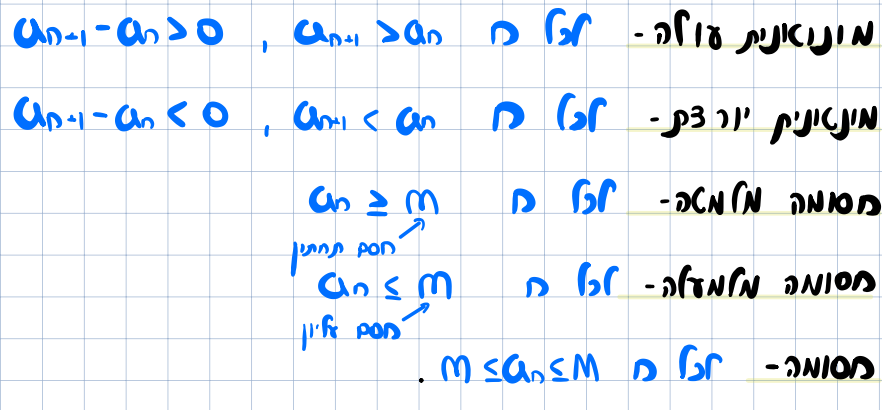 מונוטונית עולה- לכל n a_{n+1} > a_n , a_{n+1} - a_n > 0
יורדת- לכל n a_{n+1} < a_n , a_{n+1} - a_n < 0
חסומה מלמטה- לכל n a_n ≥ m
חסם תחתון
חסומה מלמעלה- לכל n a_n ≤ m
חסם עליון
חסומה- לכל n m ≤ a_n ≤ M .